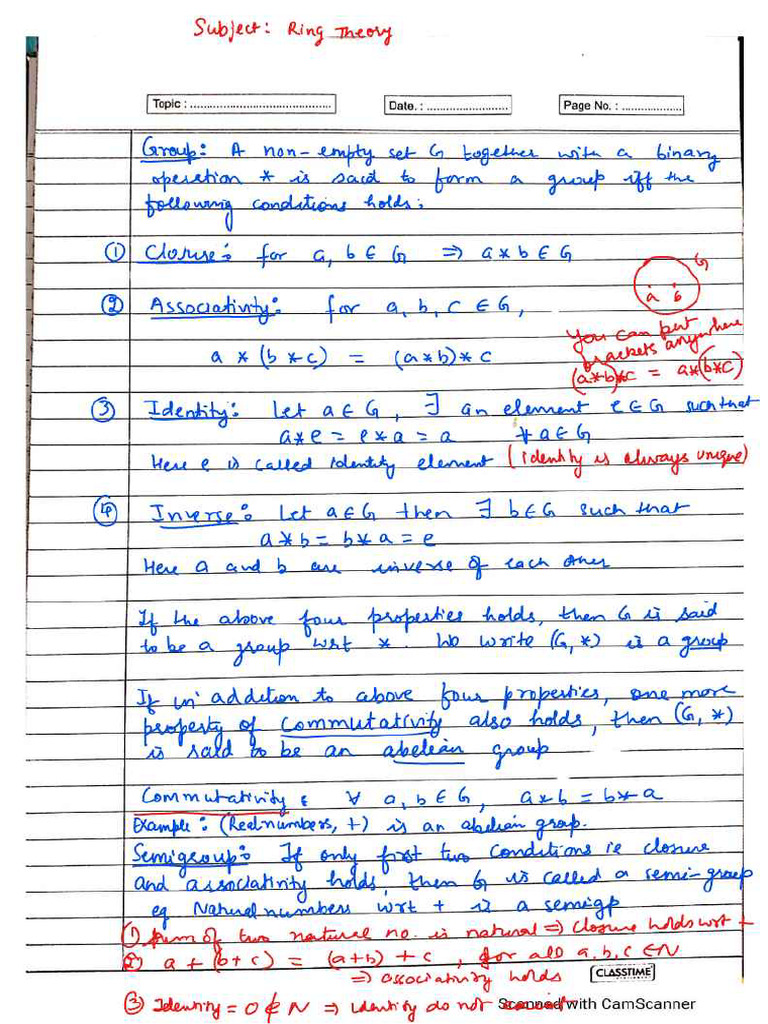 Subject: Ring Theory
Topic : ........................................... Date. : ......................... Page No. : ..................
Group: A non-empty set G together with a binary
operation * is said to form a group iff the
following conditions holds:
① Closure: for a, b ∈ G ⇒ a * b ∈ G
G
a b
② Associativity: for a, b, c ∈ G,
You can put
brackets anywhere
a * (b * c) = (a*b) * c
(a*b)*c = a*(b*c)
③ Identity: Let a ∈ G, ∃ an element e ∈ G such that
a*e = e*a = a ∀ a ∈ G
Here e is called identity element (identity is always unique)
④ Inverse: Let a ∈ G then ∃ b ∈ G such that
a*b = b*a = e
Here a and b are inverse of each other
If the above four properties holds, then G is said
to be a group wrt *. We write (G, *) is a group
If in addition to above four properties, one more
property of commutativity also holds, then (G, *)
is said to be an abelian group
Commutativity: ∀ a, b ∈ G, a*b = b*a
Example: (Real numbers, +) is an abelian group.
Semigroup: If only first two conditions ie closure
and associativity holds, then G is called a semi-group
eg Natural numbers wrt + is a semigp
① Sum of two natural no. is natural ⇒ closure holds wrt +
② a + (b + c) = (a+b) + c, for all a, b, c ∈ N
⇒ associativity holds
CLASSTIME
③ Identity = 0 ∉ N ⇒ identity do not
Scanned with CamScanner